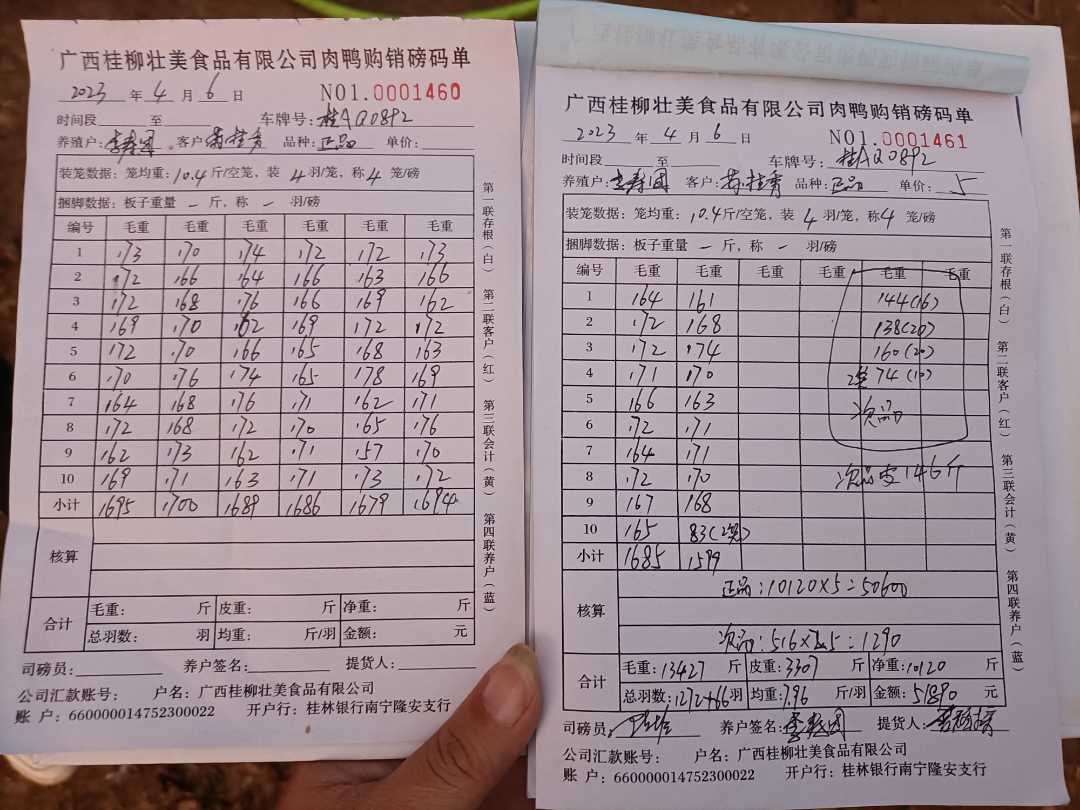 广西桂柳壮美食品有限公司肉鸭购销磅码单
2023 年 4 月 6 日 NO1.0001460
时间段 至 车牌号: 桂AQ0892
养殖户: 客户: 品种: 正品 单价:
装笼数据: 笼均重: 10.4 斤/空笼, 装 4 羽/笼, 称 4 笼/磅
捆脚数据: 板子重量 一 斤, 称 一 羽/磅
编号 毛重 毛重 毛重 毛重 毛重 毛重
1 173 170 174 172 172 173
2 172 166 164 166 163 166
3 172 168 176 166 169 162
4 169 170 162 169 172 172
5 172 170 166 165 168 163
6 170 176 174 165 178 169
7 164 168 176 171 162 171
8 172 168 172 170 165 176
9 162 173 162 171 157 170
10 169 171 163 171 173 172
小计 1695 1700 1689 1686 1679 1694
核算
合计 毛重: 斤 皮重: 斤 净重: 斤
总羽数: 羽 均重: 斤/羽 金额: 元
司磅员: 养户签名: 提货人:
公司汇款账号: 户名: 广西桂柳壮美食品有限公司
账 户: 660000014752300022 开户行: 桂林银行南宁隆安支行
第一联存根(白) 第二联客户(红) 第三联会计(黄) 第四联养户(蓝)
广西桂柳壮美食品有限公司肉鸭购销磅码单
2023 年 4 月 6 日 NO1.0001461
时间段 至 车牌号: 桂AQ0892
养殖户: 客户: 品种: 正品 单价: 5
装笼数据: 笼均重: 10.4 斤/空笼, 装 4 羽/笼, 称 4 笼/磅
捆脚数据: 板子重量 一 斤, 称 一 羽/磅
编号 毛重 毛重 毛重 毛重 毛重 毛重
1 164 161 144(16)
2 172 168 138(20)
3 172 174 160(20)
4 171 170 74(10)
5 166 163 次品
6 172 171
7 164 171
8 172 170 次品皮146斤
9 167 168
10 165 83(2笼)
小计 1685 1599
核算 正品:10120×5=50600
次品:516×2.5=1290
合计 毛重: 13427 斤 皮重: 3307 斤 净重: 10120 斤
总羽数: 1272+66 羽 均重: 7.96 斤/羽 金额: 51890 元
司磅员: 养户签名: 提货人:
公司汇款账号: 户名: 广西桂柳壮美食品有限公司
账 户: 660000014752300022 开户行: 桂林银行南宁隆安支行
第一联存根(白) 第二联客户(红) 第三联会计(黄) 第四联养户(蓝)